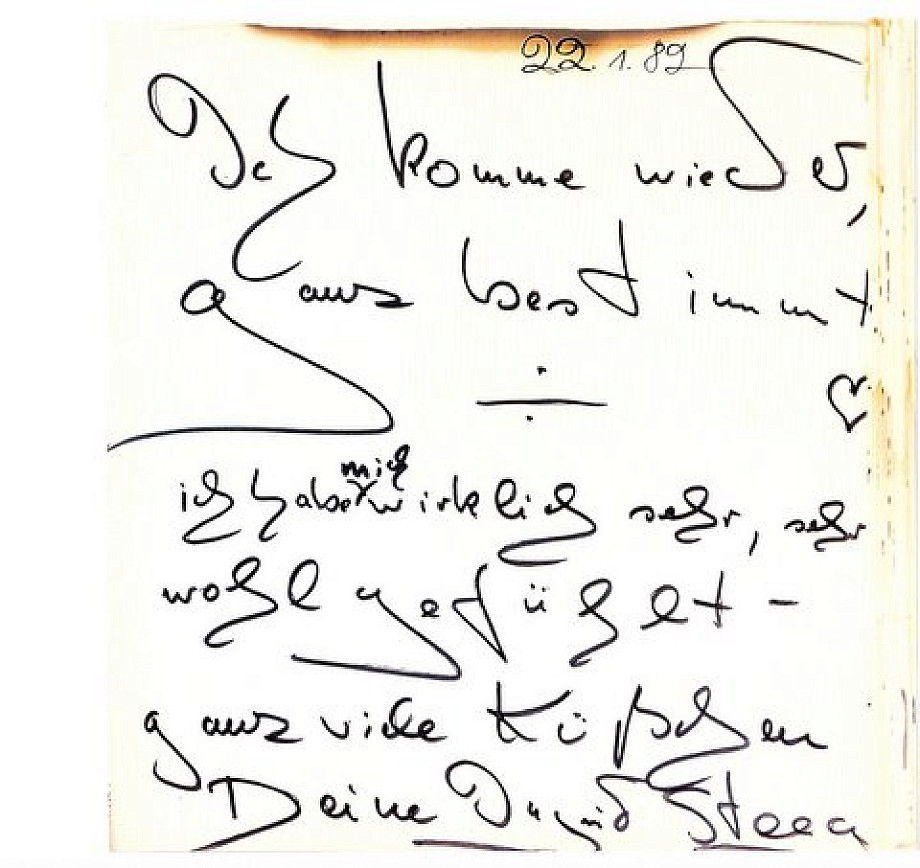 22.1.89
Ich komme wieder,
ganz bestimmt
♡
mich
ich habe wirklich sehr, sehr
wohl gefühlt -
ganz viele Küßchen
Deine Ingrid Steeg